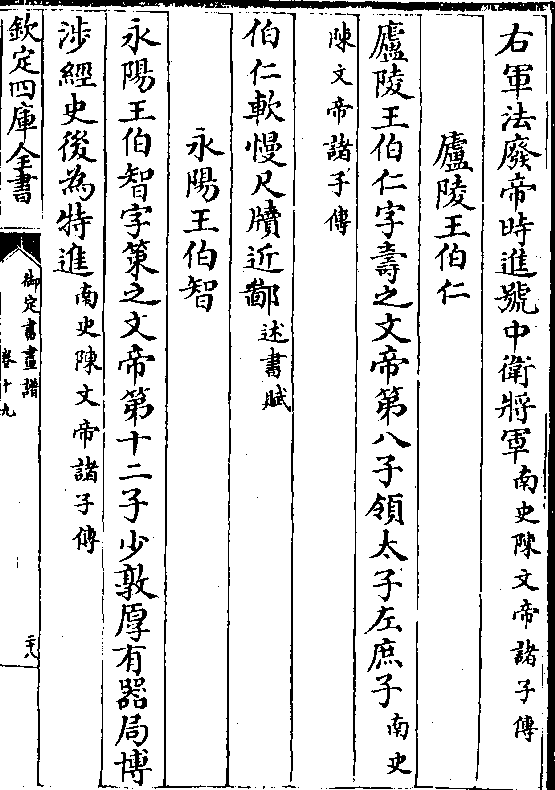 右軍法廢帝時進號中衛將軍南史陳文帝諸子傳
廬陵王伯仁
廬陵王伯仁字壽之文帝第八子領太子左庶子南史
陳文帝諸子傳
伯仁軟慢尺牘近鄙述書賦
永陽王伯智
永陽王伯智字策之文帝第十二子少敦厚有器局博
涉經史後為特進南史陳文帝諸子傳
欽定四庫全書
御定書畫譜
卷十九
二十八